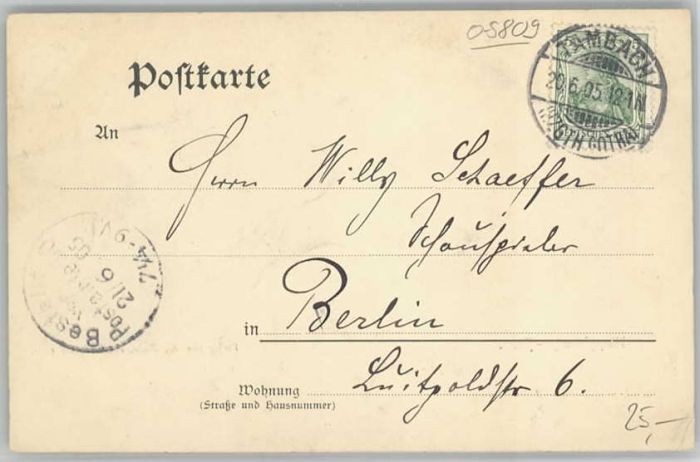 05809
Postkarte
TAMBACH
20.6.05.12-1N.
(HZGTH. GOTHA)
An
Herrn Willy Schaeffer
Schauspieler
Bestellt
vom
Postamte
21/6 05
7¼-9V.
in Berlin
Wohnung Luitpoldstr 6.
(Straße und Hausnummer)
25,-